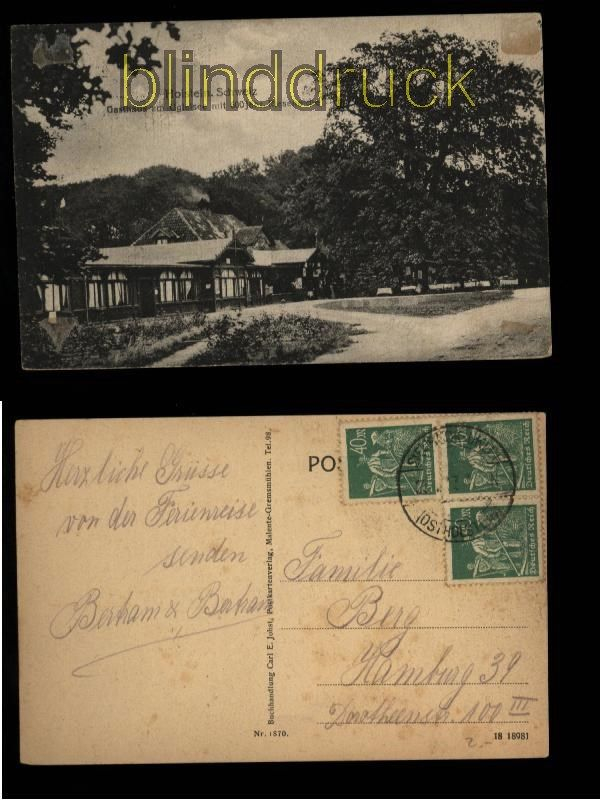 blinddruck
Holstein. Schweiz
Gasthaus
Herzliche Grüsse
von der Ferienreise
senden
Bertham & Bertham
Buchhandlung Carl E. Jobst, Postkartenverlag, Malente-Gremsmühlen. Tel. 98.
Nr. 1870.
POS
40 M
Deutsches Reich
Deutsches Reich
Deutsches Reich
Familie
Berg
Hamburg 39
Dorotheenstr. 100 III
2.-
18 18981